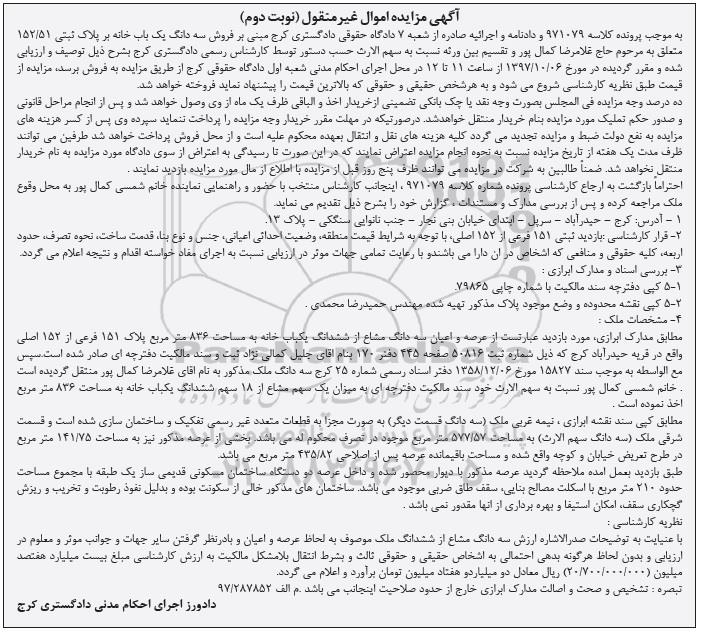 آگهی مزایده اموال غیرمنقول (نوبت دوم)
به موجب پرونده کلاسه ۹۷۱۰۷۹ و دادنامه و اجرائیه صادره از شعبه ۷ دادگاه حقوقی دادگستری کرج مبنی بر فروش سه دانگ یک باب خانه بر پلاک ثبتی ۱۵۲/۵۱
متعلق به مرحوم حاج غلامرضا کمال پور و تقسیم بین ورثه نسبت به سهم الارث حسب دستور توسط کارشناس رسمی دادگستری کرج بشرح ذیل توصیف و ارزیابی
شده و مقرر گردیده در مورخ ۱۳۹۷/۱۰/۰۶ از ساعت ۱۱ تا ۱۲ در محل اجرای احکام مدنی شعبه اول دادگاه حقوقی کرج از طریق مزایده به فروش برسد، مزایده از
قیمت طبق نظریه کارشناسی شروع می شود و به هرشخص حقیقی و حقوقی که بالاترین قیمت را پیشنهاد نماید فروخته خواهد شد.
ده درصد وجه مزایده فی المجلس بصورت وجه نقد یا چک بانکی تضمینی ازخریدار اخذ و الباقی ظرف یک ماه از وی وصول خواهد شد و پس از انجام مراحل قانونی
و صدور حکم تملیک مورد مزایده بنام خریدار منتقل خواهدشد. درصورتیکه در مهلت مقرر خریدار وجه مزایده را پرداخت ننماید سپرده وی پس از کسر هزینه های
مزایده به نفع دولت ضبط و مزایده تجدید می گردد کلیه هزینه های نقل و انتقال بعهده محکوم علیه است و از محل فروش پرداخت خواهد شد طرفین می توانند
ظرف مدت یک هفته از تاریخ مزایده نسبت به نحوه انجام مزایده اعتراض نمایند که در این صورت تا رسیدگی به اعتراض از سوی دادگاه مورد مزایده به نام خریدار
منتقل نخواهد شد. ضمناً طالبین به شرکت در مزایده می توانند ظرف پنج روز قبل از مزایده با اطلاع از مال مورد مزایده بازدید نمایند .
احتراماً بازگشت به ارجاع کارشناسی پرونده شماره کلاسه ۹۷۱۰۷۹ ، اینجانب کارشناس منتخب با حضور و راهنمایی نماینده خانم شمسی کمال پور به محل وقوع
ملک مراجعه کرده و پس از بررسی مدارک و مستندات ، گزارش خود را بشرح ذیل تقدیم می نماید.
۱ – آدرس: کرج – حیدرآباد – سرپل – ابتدای خیابان بنی نجار – جنب نانوایی سنگکی – پلاک ۱۳.
۲- قرار کارشناسی :بازدید ثبتی ۱۵۱ فرعی از ۱۵۲ اصلی، با توجه به شرایط قیمت منطقه، وضعیت احداثی اعیانی، جنس و نوع بنا، قدمت ساخت، نحوه تصرف، حدود
اربعه، کلیه حقوقی و منافعی که اشخاص در ان دارا می باشندو با رعایت تمامی جهات موثر در ارزیابی نسبت به اجرای مفاد خواسته اقدام و نتیجه اعلام می گردد.
۳- بررسی اسناد و مدارک ابرازی :
۵-۱ کپی دفترچه سند مالکیت با شماره چاپی ۷۹۸۶۵.
۵-۲ کپی نقشه محدوده و وضع موجود پلاک مذکور تهیه شده مهندس حمیدرضا محمدی .
۴- مشخصات ملک :
مطابق مدارک ابرازی، مورد بازدید عبارتست از عرصه و اعیان سه دانگ مشاع از ششدانگ یکباب خانه به مساحت ۸۳۶ متر مربع پلاک ۱۵۱ فرعی از ۱۵۲ اصلی
واقع در قریه حیدرآباد کرج که ذیل شماره ثبت ۵۰۸۱۶ صفحه ۴۴۵ دفتر ۱۷۰ بنام اقای جلیل کمالی نژاد ثبت و سند مالکیت دفترچه ای صادر شده است.سپس
مع الواسطه به موجب سند ۱۵۸۲۷ مورخ ۱۳۵۸/۱۲/۰۶ دفتر اسناد رسمی شماره ۲۵ کرج سه دانگ ملک مذکور به نام اقای غلامرضا کمال پور منتقل گردیده است
. خانم شمسی کمال پور نسبت به سهم الارث خود سند مالکیت دفترچه ای به میزان یک سهم مشاع از ۱۸ سهم ششدانگ یکباب خانه به مساحت ۸۳۶ متر مربع
اخذ نموده است .
مطابق کپی سند نقشه ابرازی ، نیمه غربی ملک (سه دانگ قسمت دیگر) به صورت مجزا به قطعات متعدد غیر رسمی تفکیک و ساختمان سازی شده است و قسمت
شرقی ملک (سه دانگ سهم الارث) به مساحت ۵۷۷/۵۷ متر مربع موجود در تصرف محکوم له می باشد. بخشی از عرصه مذکور نیز به مساحت ۱۴۱/۷۵ متر مربع
در طرح تعریض خیابان و کوچه واقع شده و مساحت باقیمانده عرصه پس از اصلاحی ۴۳۵/۸۲ متر مربع می باشد.
طبق بازدید بعمل امده ملاحظه گردید عرصه مذکور با دیوار محصور شده و داخل عرصه دو دستگاه ساختمان مسکونی قدیمی ساز یک طبقه با مجموع مساحت
حدود ۲۱۰ متر مربع با اسکلت مصالح بنایی، سقف طاق ضربی موجود می باشد. ساختمان های مذکور خالی از سکونت بوده و بدلیل نفوذ رطوبت و تخریب و ریزش
گچکاری سقف، امکان استیفا و بهره برداری از انها مقدور نمی باشد .
نظریه کارشناسی :
با عنیایت به توضیحات صدرالاشاره ارزش سه دانگ مشاع از ششدانگ ملک موصوف به لحاظ عرصه و اعیان و بادرنظر گرفتن سایر جهات و جوانب موثر و معلوم در
ارزیابی و بدون لحاظ هرگونه بدهی احتمالی به اشخاص حقیقی و حقوقی ثالث و بشرط انتقال بلامشکل مالکیت به ارزش کارشناسی مبلغ بیست میلیارد هفتصد
میلیون (۲۰/۷۰۰/۰۰۰/۰۰۰) ریال معادل دو میلیاردو هفتاد میلیون تومان برآورد و اعلام می گردد.
تبصره : تشخیص و صحت و اصالت مدارک ابرازی خارج از حدود صلاحیت اینجانب می باشد .م الف ۹۷/۲۸۷۸۵۲
دادورز اجرای احکام مدنی دادگستری کرج